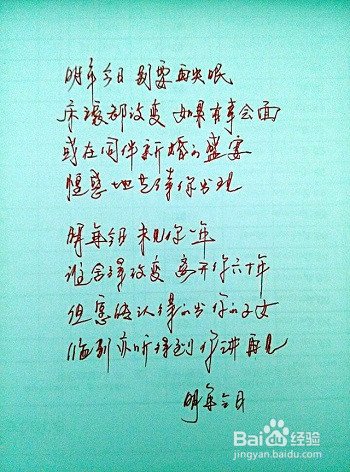 明年今日 别要再失眠
床褥都改变 如果有幸会面
或在同伴新婚的盛宴
惶惑地等待你出现
明年今日 未见你一年
谁舍得改变 离开你六十年
但愿能认得出 你的子女
临别亦听得到你讲再见
明年今日
Baidu经验
jingyan.baidu.com